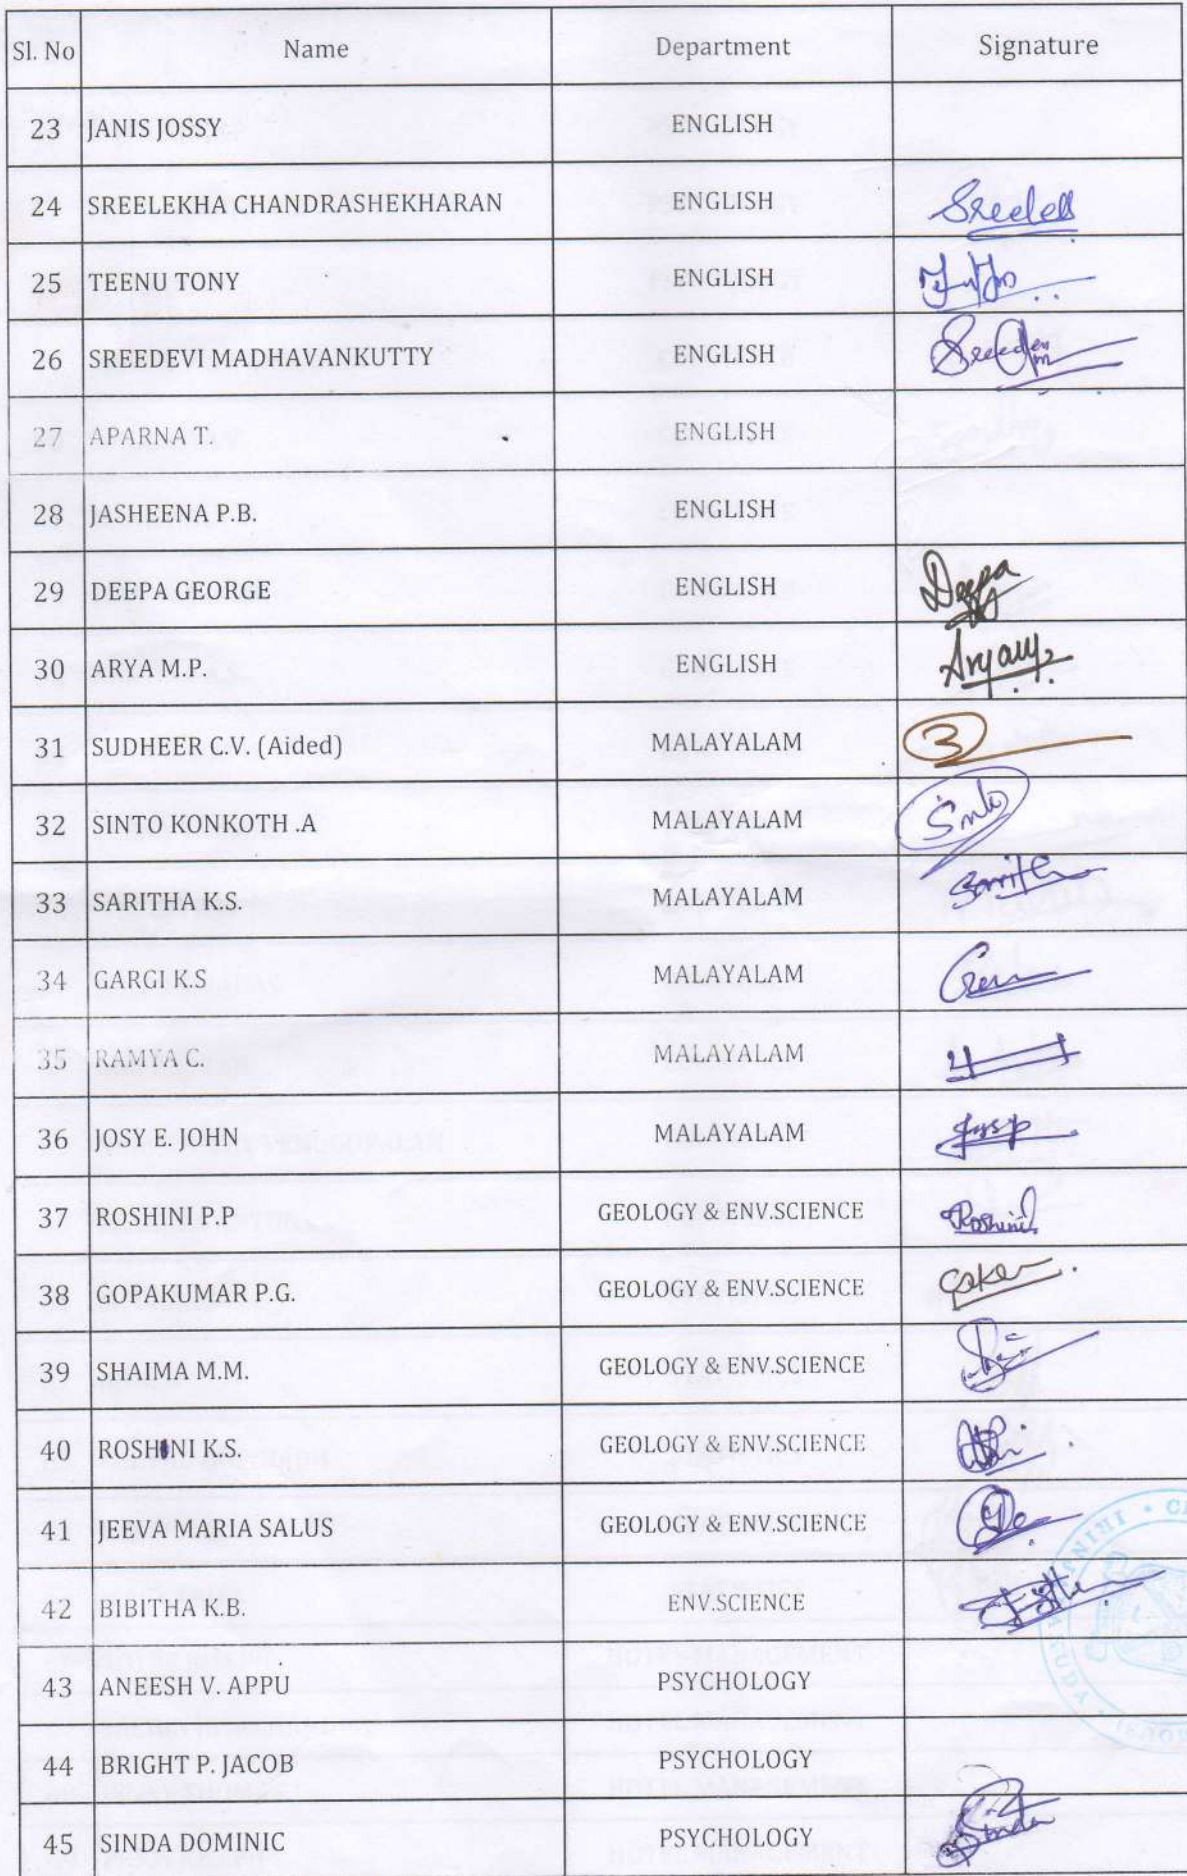 Sl. No Name Department Signature
23 JANIS JOSSY ENGLISH
24 SREELEKHA CHANDRASHEKHARAN ENGLISH
25 TEENU TONY ENGLISH
26 SREEDEVI MADHAVANKUTTY ENGLISH
27 APARNA T. ENGLISH
28 JASHEENA P.B. ENGLISH
29 DEEPA GEORGE ENGLISH Deepa
30 ARYA M.P. ENGLISH
31 SUDHEER C.V. (Aided) MALAYALAM
32 SINTO KONKOTH .A MALAYALAM Sinto
33 SARITHA K.S. MALAYALAM
34 GARGI K.S MALAYALAM
35 RAMYA C. MALAYALAM
36 JOSY E. JOHN MALAYALAM
37 ROSHINI P.P GEOLOGY & ENV.SCIENCE Roshini
38 GOPAKUMAR P.G. GEOLOGY & ENV.SCIENCE
39 SHAIMA M.M. GEOLOGY & ENV.SCIENCE
40 ROSHINI K.S. GEOLOGY & ENV.SCIENCE
41 JEEVA MARIA SALUS GEOLOGY & ENV.SCIENCE
42 BIBITHA K.B. ENV.SCIENCE
43 ANEESH V. APPU PSYCHOLOGY
44 BRIGHT P. JACOB PSYCHOLOGY
45 SINDA DOMINIC PSYCHOLOGY Sinda